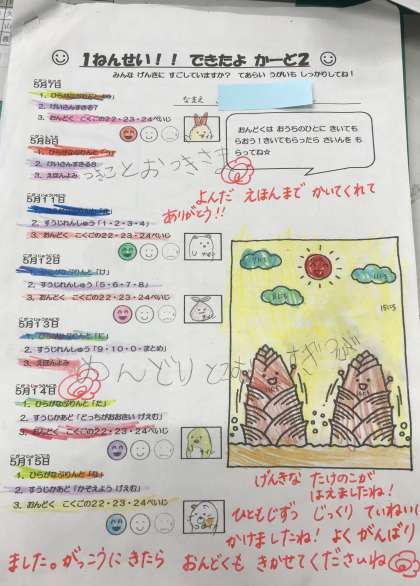 1ねんせい！！ できたよ かーど2
みんな げんきに すごしていますか？ てあらい うがいも しっかりしてね！
なまえ
5月7日
1. ひらがなぷりんと
2. けいさんすきる7
3. おんどく こくごの22・23・24ぺいじ
5月8日
1. ひらがなぷりんと「つ」
2. けいさんすきる8
3. えほんよみ
つきことおつきさま
おんどくは おうちのひとに きいてもらおう！きいてもらったら さいんを もらってね☆
よんだ えほんまで かいてくれて
ありがとう！！
5月11日
2. すうじれんしゅう「1・2・3・4」
3. おんどく こくごの22・23・24ぺいじ
5月12日
1. ひらがなぷりんと「け」
2. すうじれんしゅう「5・6・7・8」
3. おんどく こくごの22・23・24ぺいじ
5月13日
1. ひらがなぷりんと「に」
2. すうじれんしゅう「9・10・0・まとめ」
3. えほんよみ
5月14日
1. ひらがなぷりんと「た」
2. すうじかあど「どっちがおおきい げえむ」
3. おんどく こくごの22・23・24ぺいじ
5月15日
1. ひらがなぷりんと「な」
2. すうじかあど「かぞえよう げえむ」
3. おんどく こくごの22・23・24ぺいじ
げんきな たけのこが
はえましたね！
ひともじずつ じっくり ていねいに
かけましたね！ よく がんばり
ました。がっこうに きたら おんどくも きかせてくださいね